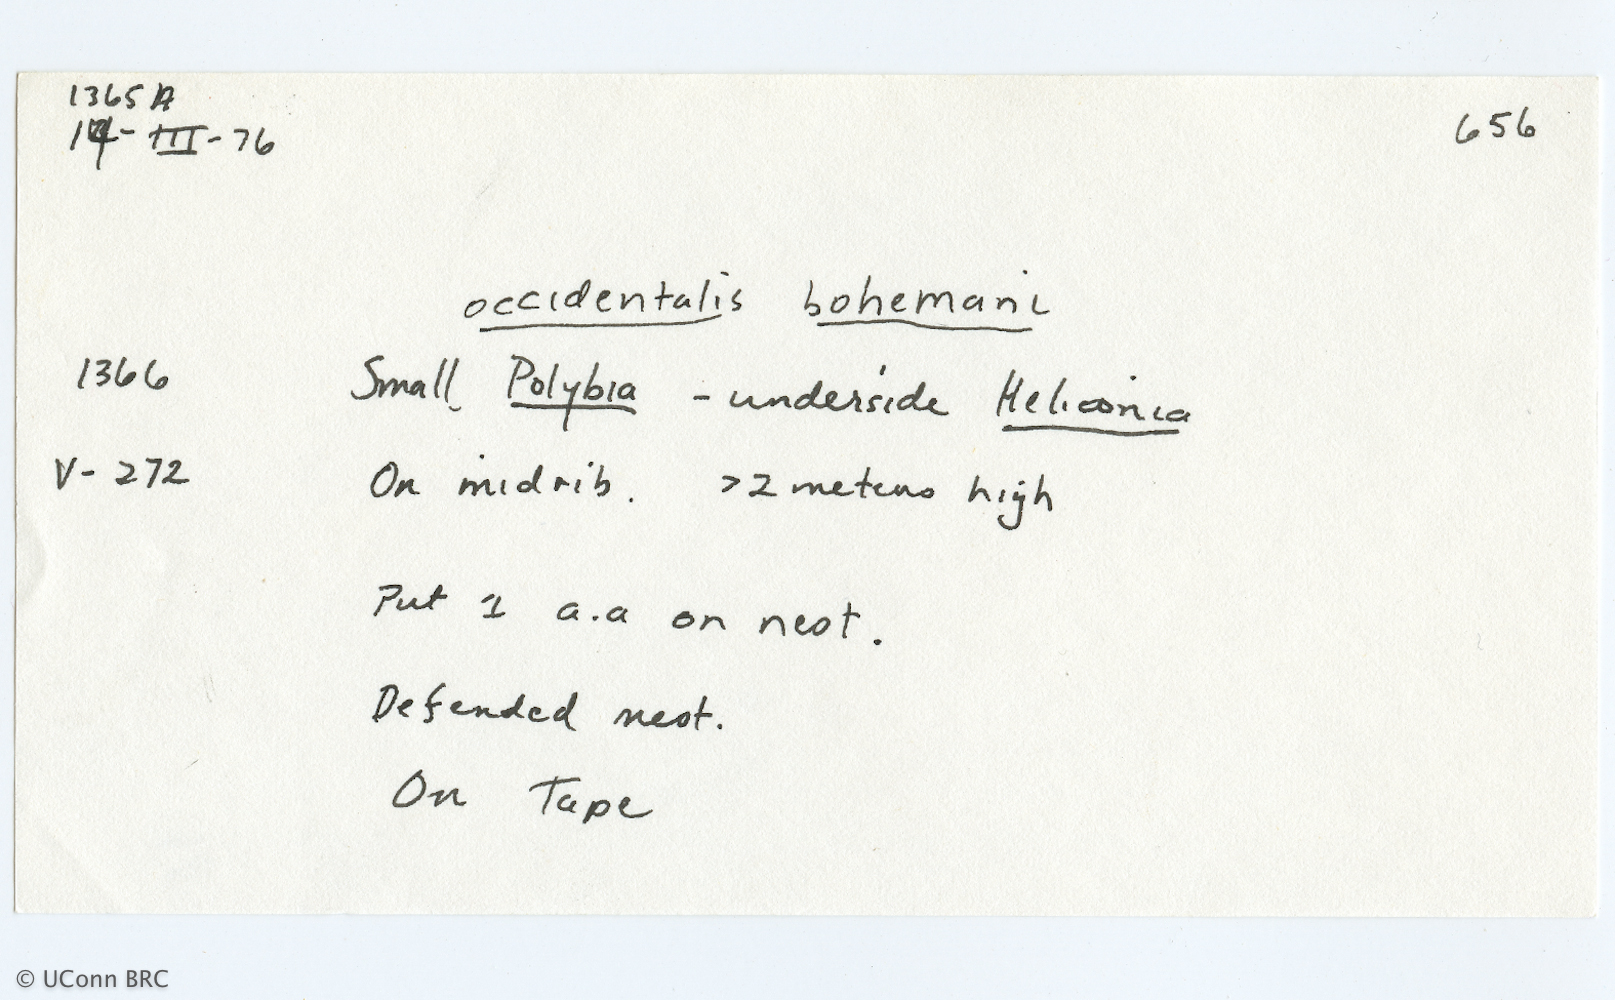 1365A
14-III-76
656
occidentalis bohemani
1366 Small Polybia - underside Heliconia
V-272 On midrib. >2 meters high
Put 1 a.a on nest.
Defended nest.
On Tape
© UConn BRC